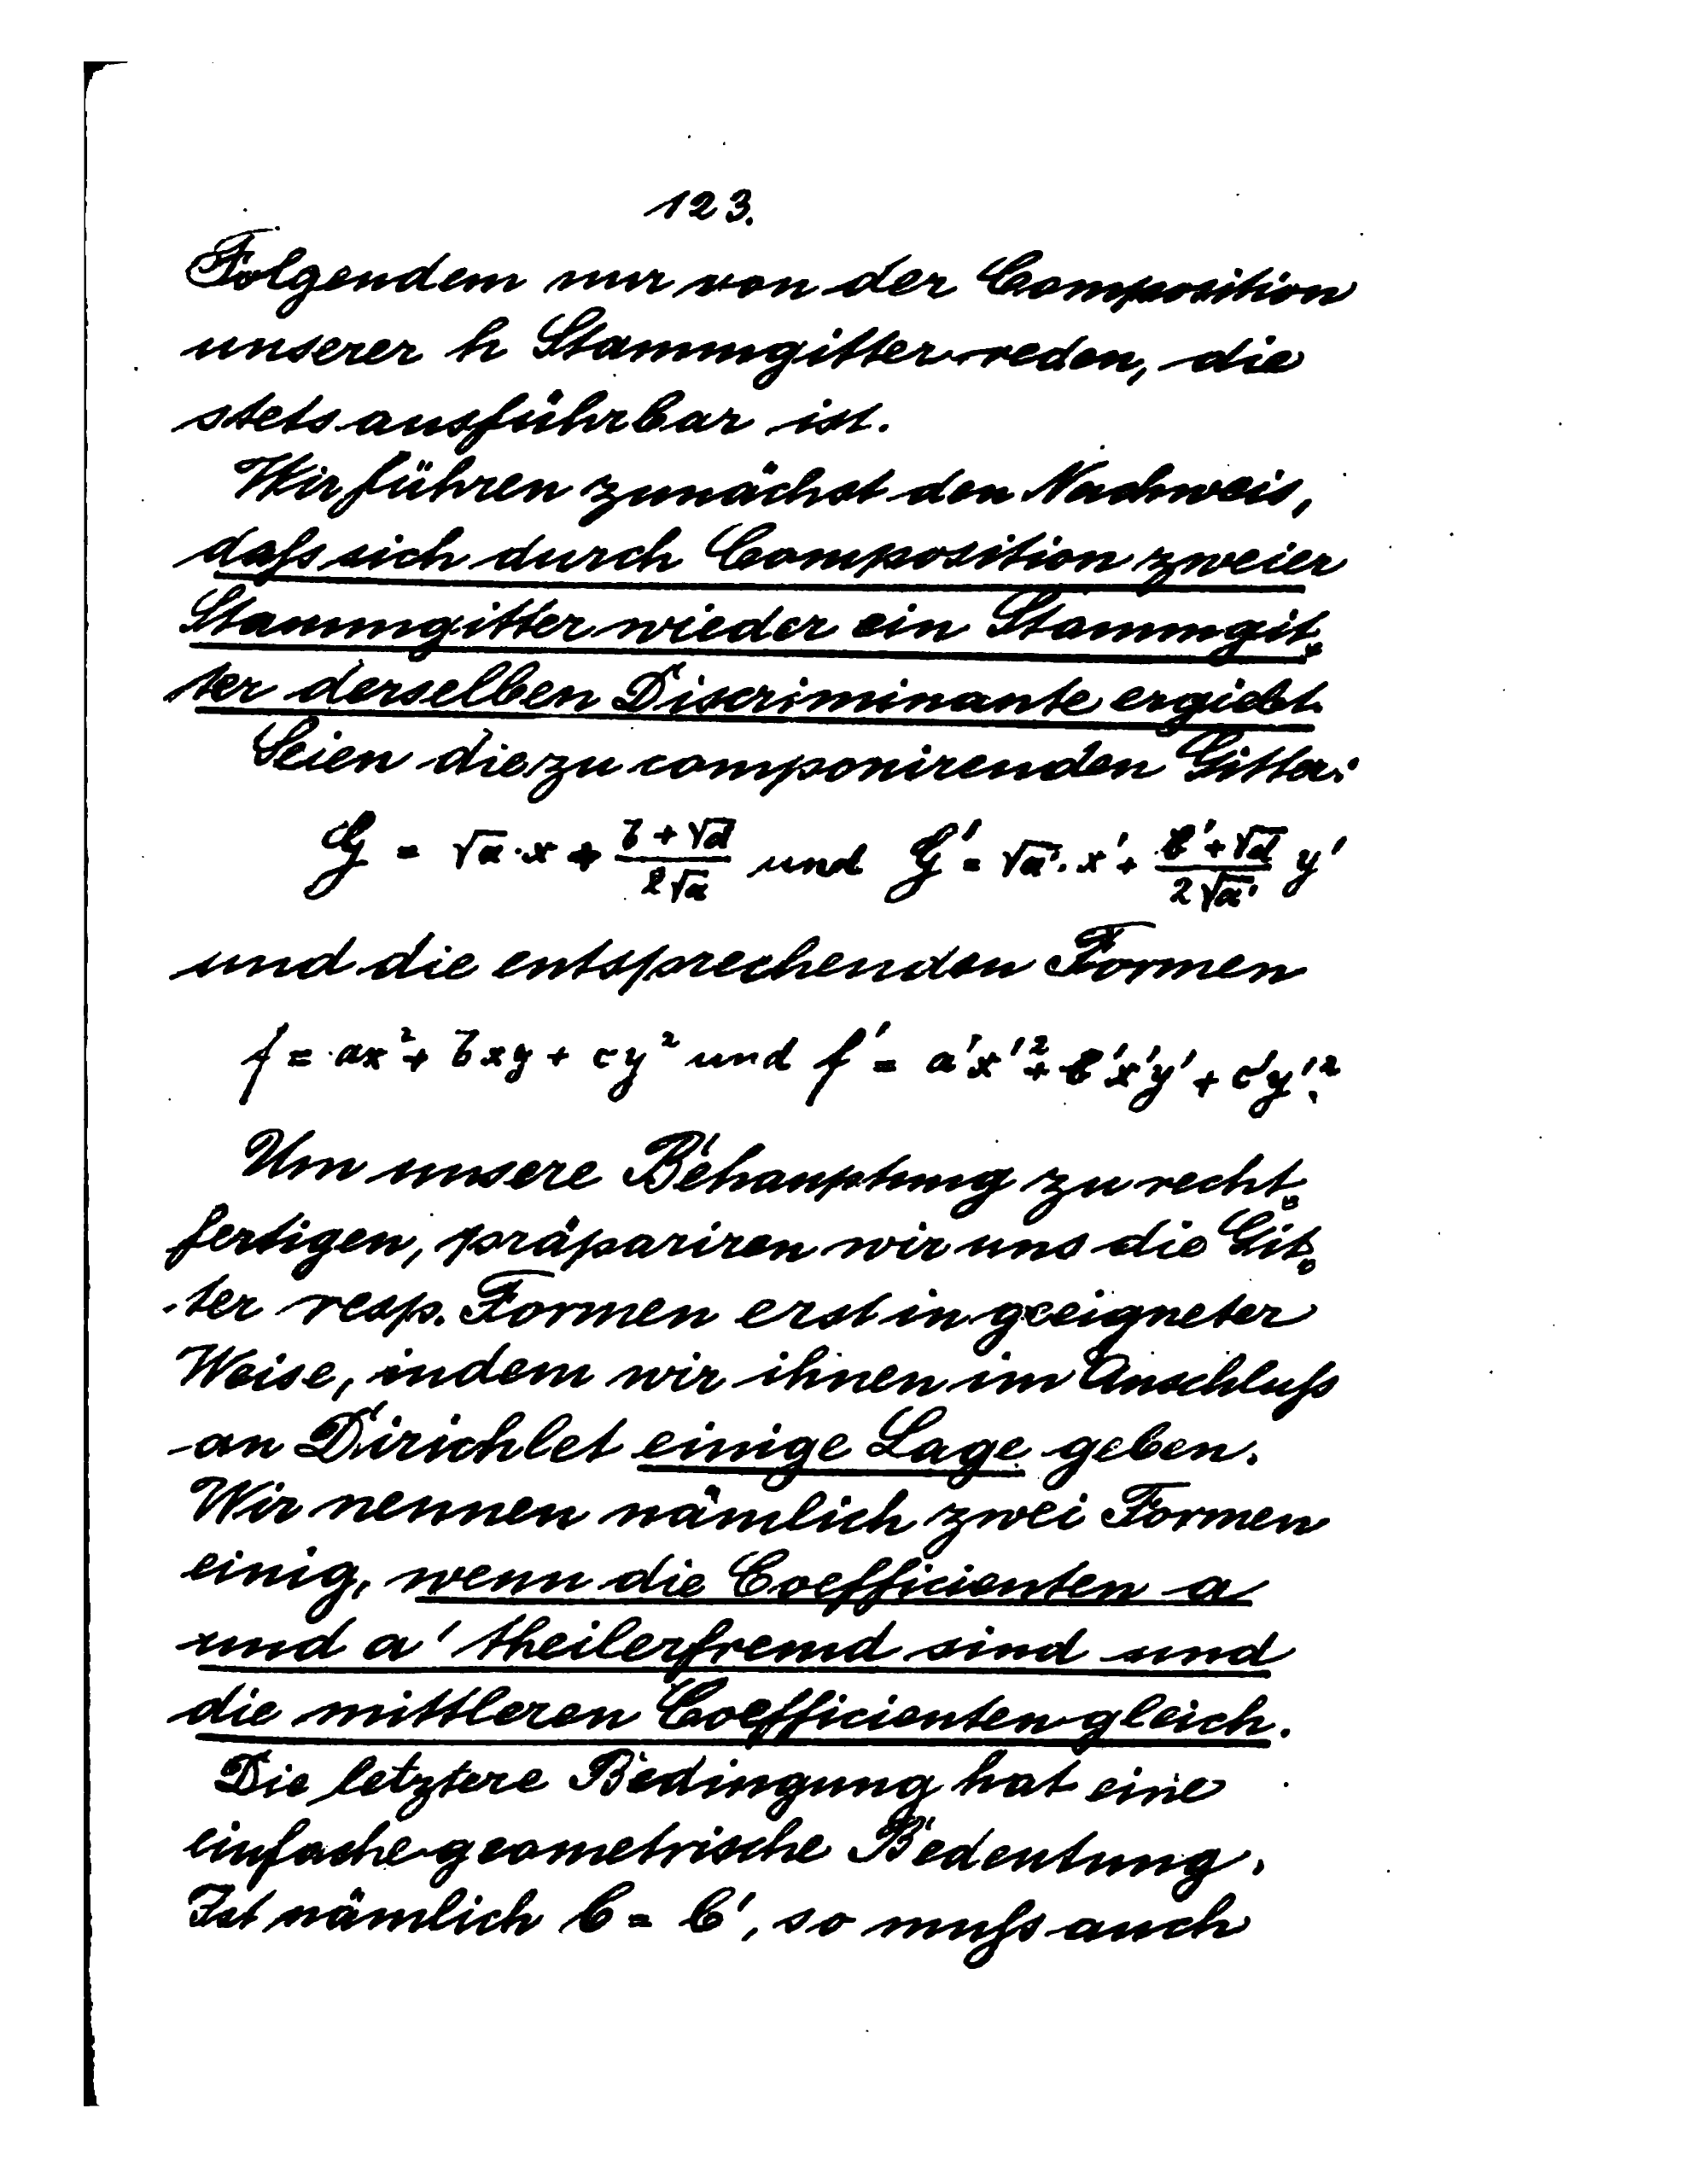 123.
Folgendem nur von der Composition
unserer h Stammgitter reden, die
stets ausführbar ist.
Wir führen zunächst den Nachweis,
daſs sich durch Composition zweier
Stammgitter wieder ein Stammgit-
ter derselben Discriminante ergiebt.
Seien die zu componirenden Gitter:
G = √a · x + (b + √d)/(2√a) und G' = √a' · x' + (b' + √d)/(2√a') y'
und die entsprechenden Formen
f = ax² + bxy + cy² und f' = a'x'² + b'x'y' + c'y'².
Um unsere Behauptung zu recht-
fertigen, präpariren wir uns die Git-
ter resp. Formen erst in geeigneter
Weise, indem wir ihnen im Anschluſs
an Dirichlet einige Lage geben.
Wir nennen nämlich zwei Formen
einig, wenn die Coefficienten a
und a' theilerfremd sind und
die mittleren Coefficienten gleich.
Die letztere Bedingung hat eine
einfache geometrische Bedeutung.
Ist nämlich b = b', so muſs auch